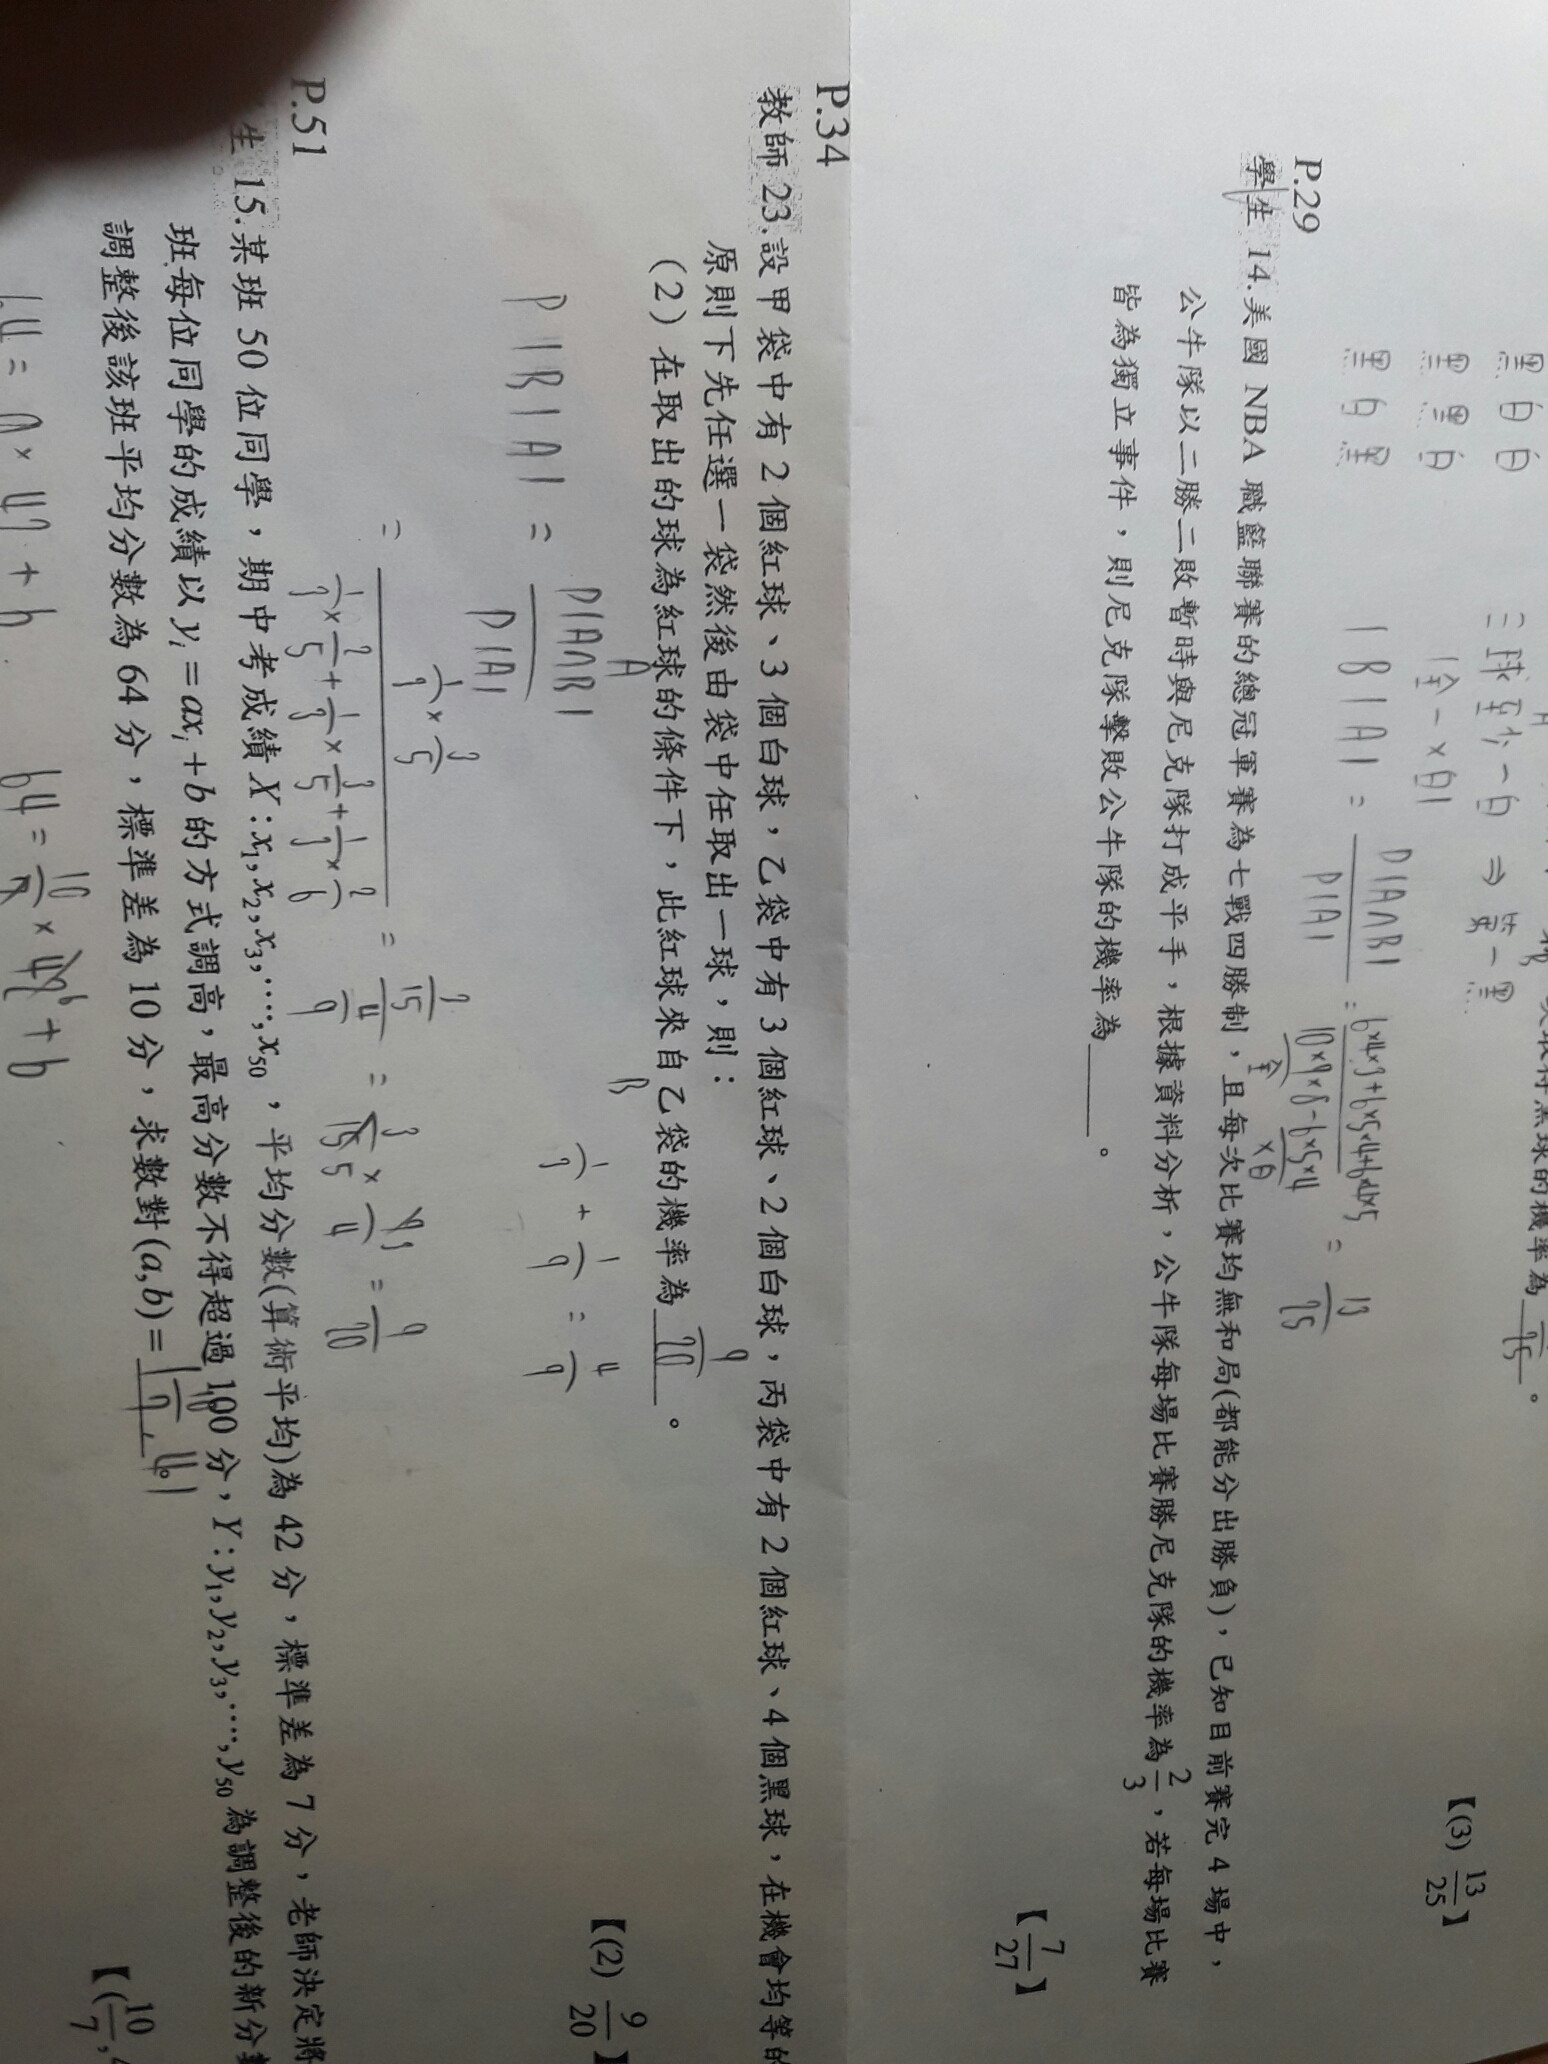 黑球的機率為 75 。
黑 白 白
三球至少一白 ⇒ 第一黑
黑 黑 白
(全 - ×白)
【(3) 13/25】
黑 白 黑
(B|A) = P(A∩B)/P(A) = 6×4×3+6×5×4+6×4×5 / 10×9×8-6×5×4 = 13/25
全 ×白
P.29
學生 14.美國 NBA 職籃聯賽的總冠軍賽為七戰四勝制,且每次比賽均無和局(都能分出勝負),已知目前賽完 4 場中,
公牛隊以二勝二敗暫時與尼克隊打成平手,根據資料分析,公牛隊每場比賽勝尼克隊的機率為 2/3,若每場比賽
皆為獨立事件,則尼克隊擊敗公牛隊的機率為______。
【7/27】
P.34
教師 23.設甲袋中有 2 個紅球、3 個白球,乙袋中有 3 個紅球、2 個白球,丙袋中有 2 個紅球、4 個黑球,在機會均等的
原則下先任選一袋然後由袋中任取出一球,則:
(2)在取出的球為紅球的條件下,此紅球來自乙袋的機率為 9/20 。
A B
【(2) 9/20】
P(B|A) = P(A∩B)/P(A)
= 1/3×3/5 / 1/3×2/5+1/3×3/5+1/3×2/6 = 3/15 / 4/9 = 3/15 × 9/4 = 9/20
P.51
生 15.某班 50 位同學,期中考成績 X:x₁,x₂,x₃,…,x₅₀,平均分數(算術平均)為 42 分,標準差為 7 分,老師決定將
班每位同學的成績以 yᵢ=axᵢ+b 的方式調高,最高分數不得超過 100 分,Y:y₁,y₂,y₃,…,y₅₀ 為調整後的新分
調整後該班平均分數為 64 分,標準差為 10 分,求數對(a,b)= (10/7, 4)
【(10/7,
64 = a × 42 + b 64 = 10/7 × 42 + b